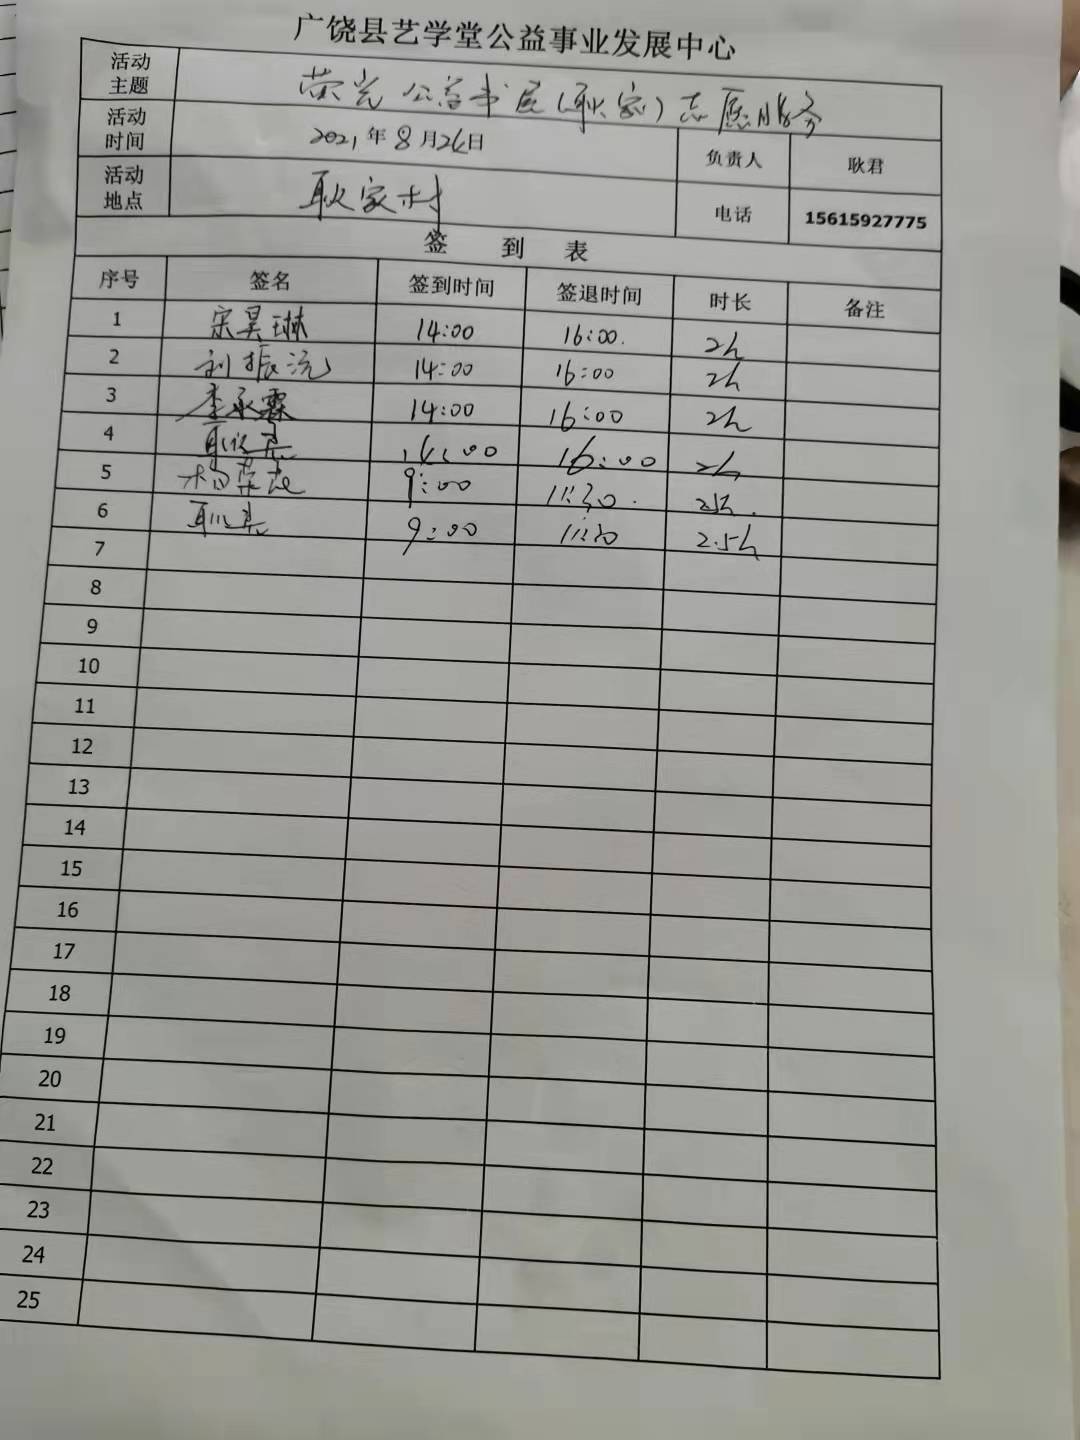 广饶县艺学堂公益事业发展中心
活动主题 荧光公益书屋(耿家)志愿服务
活动时间 2021年8月26日 负责人 耿君
活动地点 耿家村 电话 15615927775
签 到 表
序号 签名 签到时间 签退时间 时长 备注
1 宋昊琳 14:00 16:00. 2h
2 刘振沅 14:00 16:00 2h
3 李承霖 14:00 16:00 2h
4 14:00 16:00 2h
5 9:00 11:30.
6 9:00 11:30 2.5h
7
8
9
10
11
12
13
14
15
16
17
18
19
20
21
22
23
24
25